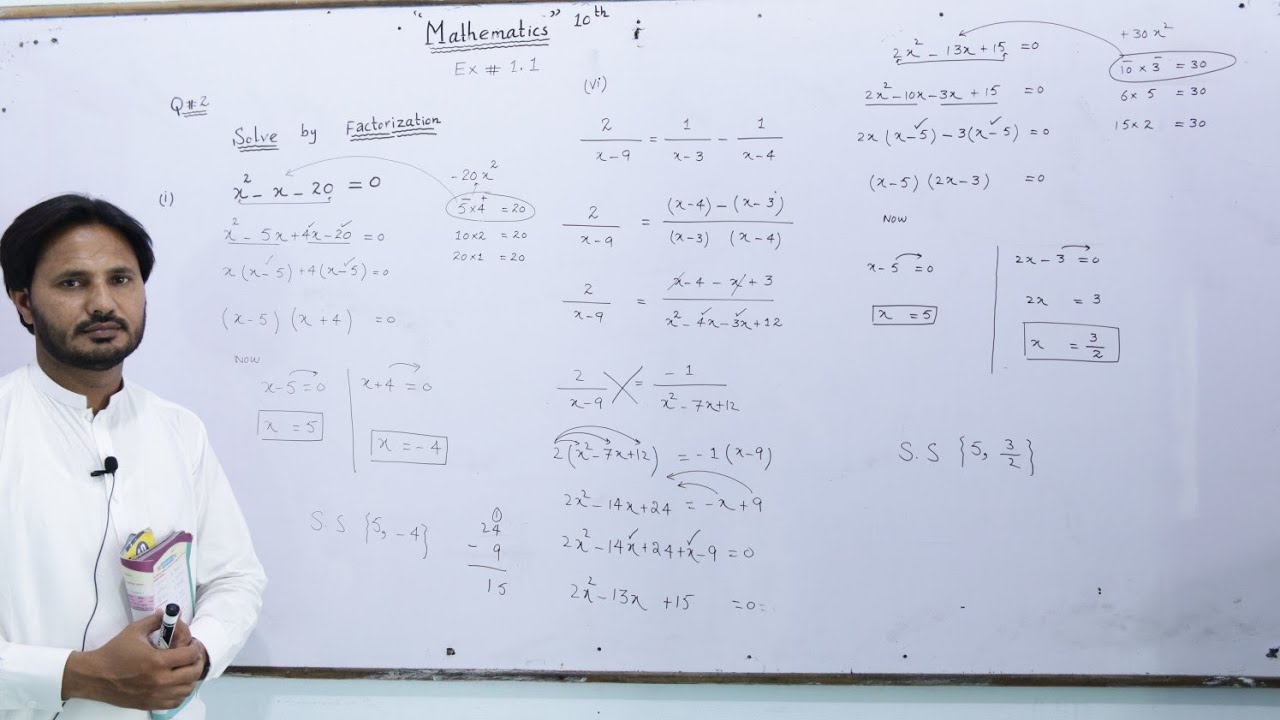 "Mathematics" 10th
Ex # 1.1
Q#2
Solve by Factorization
(i)
x² - x - 20 = 0
-20x²
5̄ × 4⁺ = 20
10×2 = 20
20×1 = 20
x² - 5x + 4x - 20 = 0
x(x-5) + 4(x-5) = 0
(x-5) (x+4) = 0
Now
x-5 = 0 | x+4 = 0
x = 5 | x = -4
S.S {5, -4}
24
- 9
15
(vi)
2/(x-9) = 1/(x-3) - 1/(x-4)
2/(x-9) = ((x-4) - (x-3))/((x-3) (x-4))
2/(x-9) = (x-4-x+3)/(x²-4x-3x+12)
2/(x-9) = -1/(x²-7x+12)
2(x²-7x+12) = -1(x-9)
2x²-14x+24 = -x+9
2x²-14x+24+x-9 = 0
2x²-13x +15 = 0
2x² - 13x + 15 = 0
+30x²
1̄0 × 3̄ = 30
6×5 = 30
15×2 = 30
2x²-10x-3x+15 = 0
2x(x-5) - 3(x-5) = 0
(x-5) (2x-3) = 0
Now
x-5 = 0 | 2x-3 = 0
2x = 3
x = 5 | x = 3/2
S.S {5, 3/2}